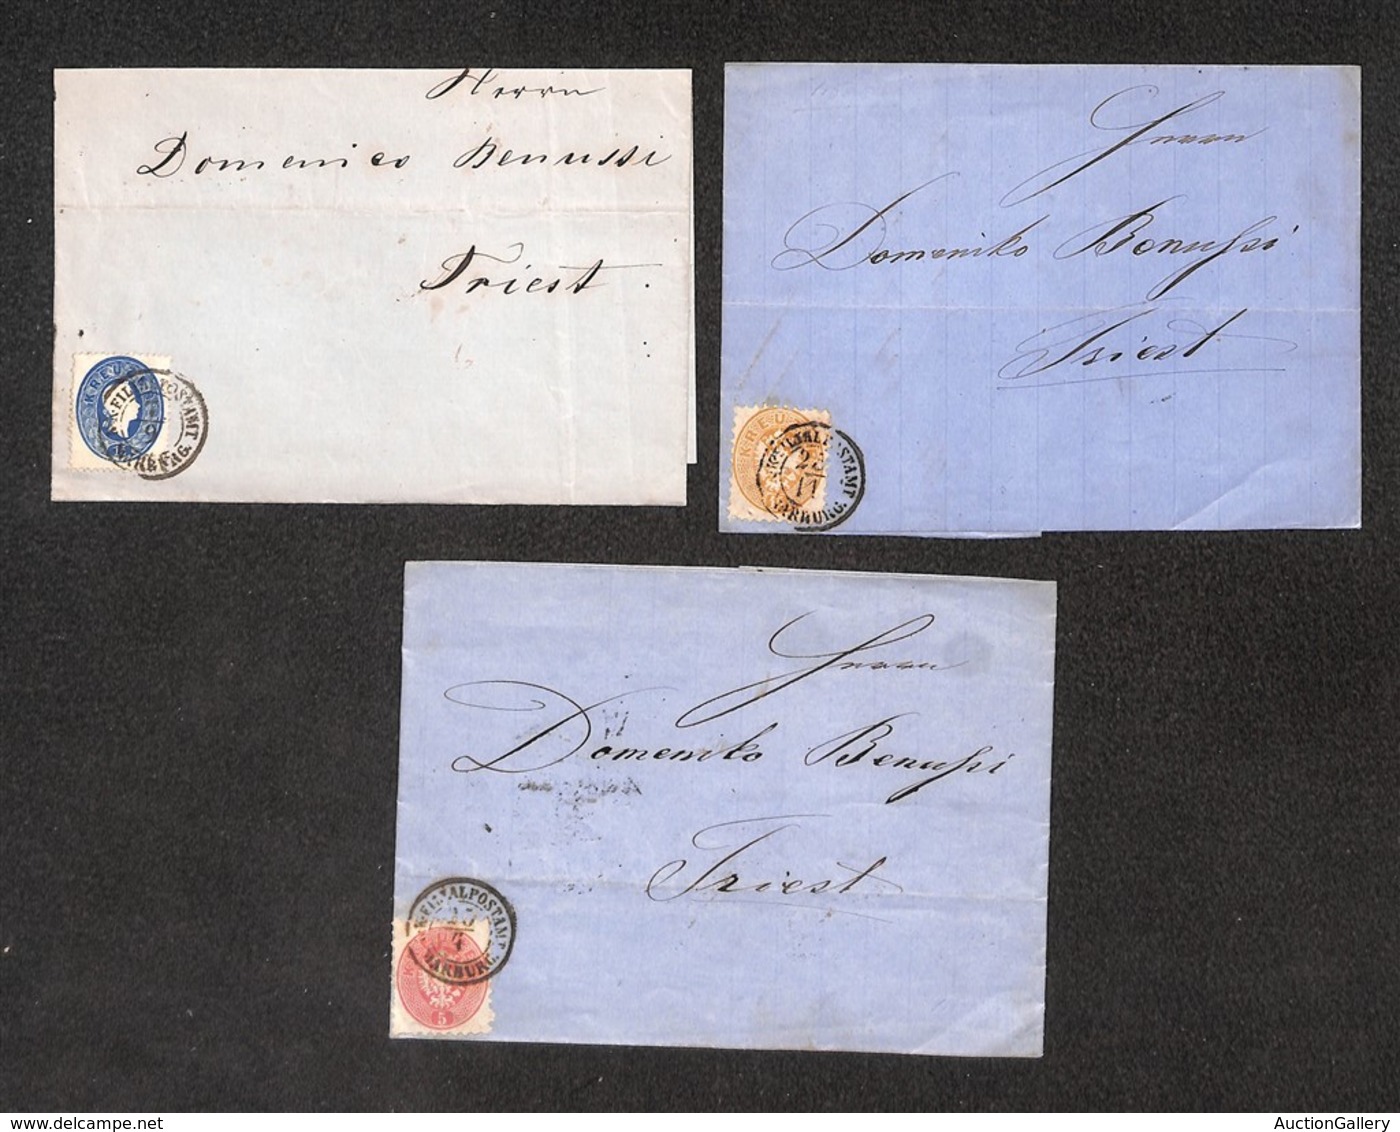 Herrn
Domenico Benussi
Triest.
KREUZER
K.K. FILIALPOSTAMT
MARBURG.
Herrn
Domeniko Benussi
Triest
KREU
FILIALPOSTAMT
23
11
MARBURG.
Herrn
Domeniko Benussi
Triest
K.K. FILIALPOSTAMT
MARBURG.
5
delcampe.net
AuctionGallery